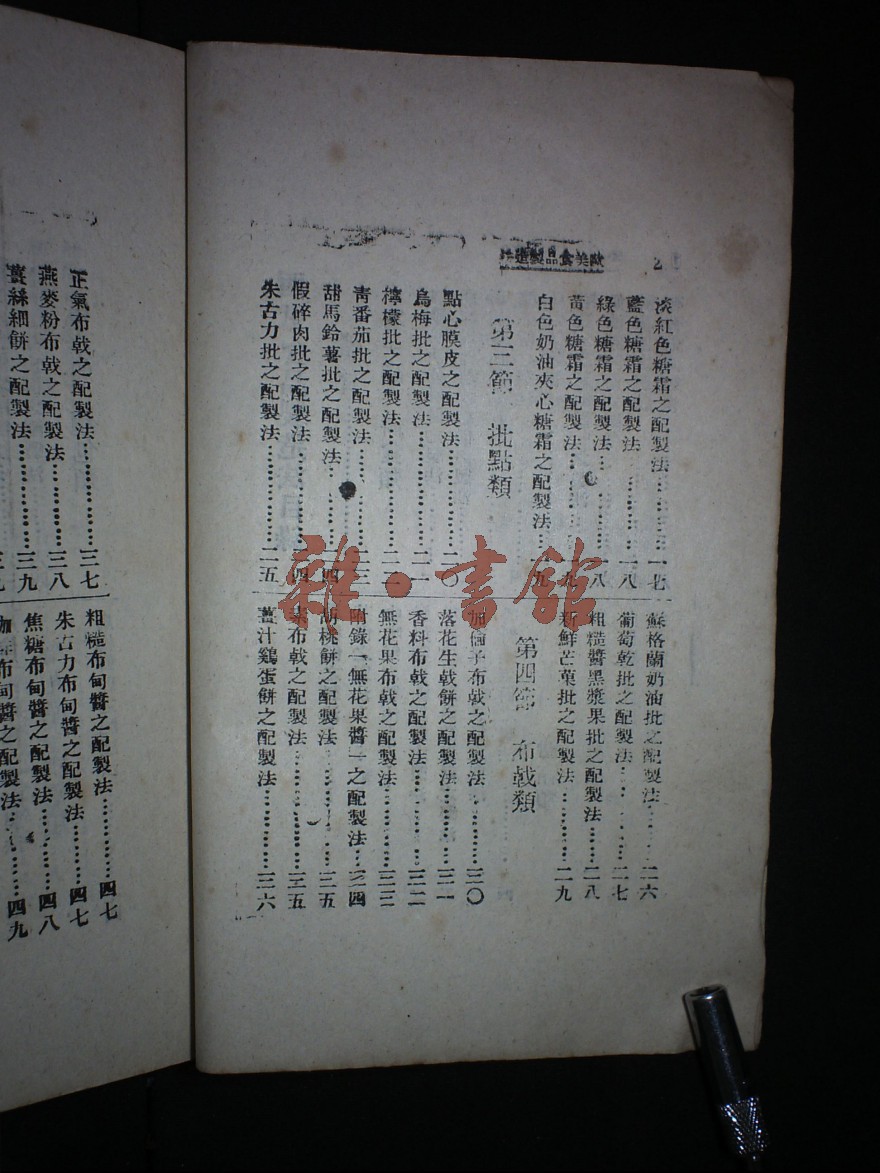 2
歐美食品製造法
淡紅色糖霜之配製法…………一七
藍色糖霜之配製法…………一八
綠色糖霜之配製法…………一八
黃色糖霜之配製法…………一九
白色奶油夾心糖霜之配製法……一九
第三節 批點類
點心膜皮之配製法…………二〇
烏梅批之配製法…………二一
檸檬批之配製法…………二二
青番茄批之配製法…………二三
甜馬鈴薯批之配製法…………二四
假碎肉批之配製法…………二四
朱古力批之配製法…………二五
蘇格蘭奶油批之配製法………二六
葡萄乾批之配製法…………二七
粗糙醬黑漿果批之配製法………二八
新鮮芒菓批之配製法…………二九
第四節 布戟類
加倫子布戟之配製法…………三〇
落花生戟餅之配製法…………三一
香料布戟之配製法…………三二
無花果布戟之配製法…………三三
附錄一無花果醬一之配製法…三四
胡桃餅之配製法…………三五
素布戟之配製法…………三五
薑汁鷄蛋餅之配製法…………三六
正氣布戟之配製法…………三七
燕麥粉布戟之配製法…………三八
薑絲細餅之配製法…………三九
粗糙布甸醬之配製法…………四七
朱古力布甸醬之配製法………四七
焦糖布甸醬之配製法…………四八
布甸醬之配製法…………四九
雜·書館